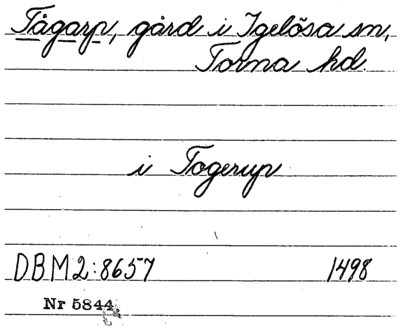 Tågarp, gård i Igelösa sn,
Torna hd.
i Togerup
DBM 2:8657 1498
Nr 5844